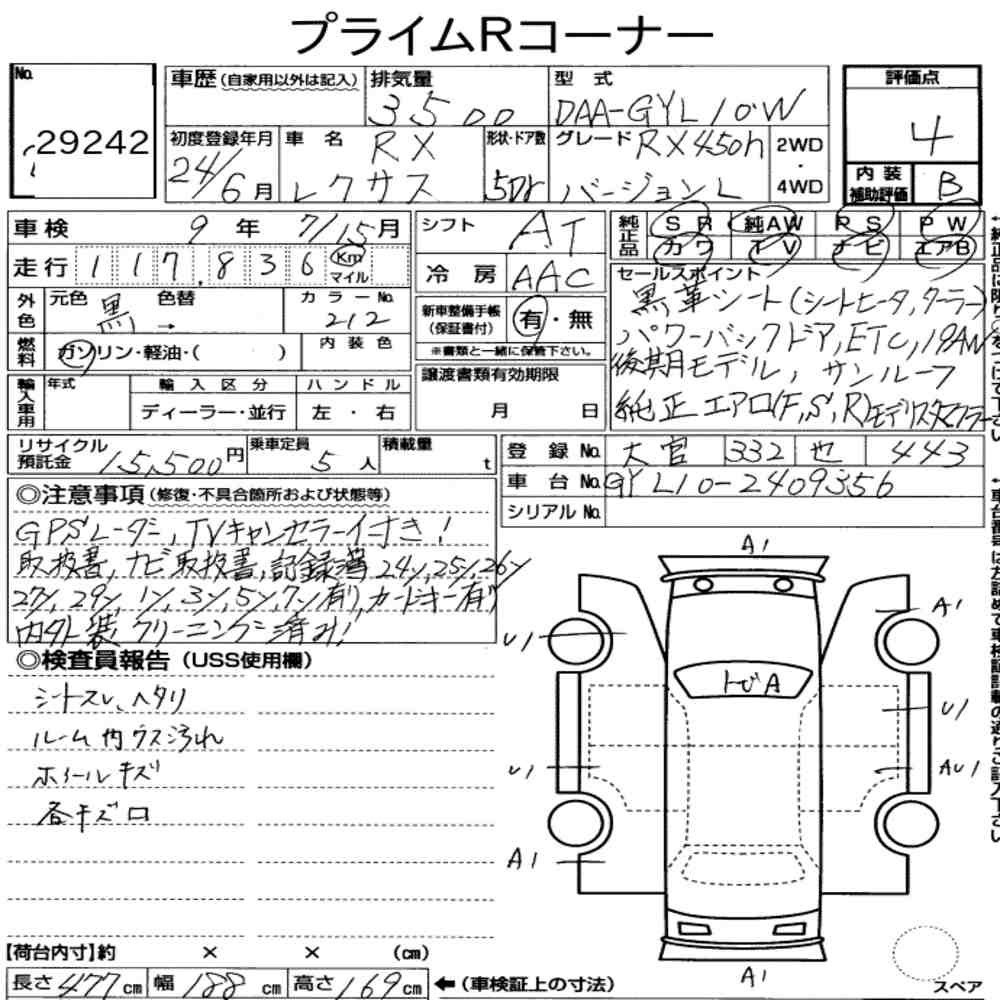 プライムRコーナー
No.
29242
車歴 (自家用以外は記入)
排気量
3500
型 式
DAA-GYL10W
評価点
4
初度登録年月
24/6月
車 名
RX
レクサス
形状・ドア数
5Dr
グレード
RX450h
バージョンL
2WD
・
4WD
内 装
補助評価
B
車検 9年 7/15月
走行 117,836 Km マイル
シフト AT
冷 房 AAC
純正品
SR 純AW PS PW
カワ TV ナビ エアB
セールスポイント
黒革シート(シートヒータ,クーラー)
パワーバックドア,ETC,19AW
後期モデル, サンルーフ
純正エアロ(F,S,R)モデリスタマフラー
外色
元色 黒 色替 →
カラーNo. 212
新車整備手帳
(保証書付)
有・無
※書類と一緒に保管下さい。
燃料
ガソリン・軽油・( )
内 装 色
輸入車用
年式
輸 入 区 分
ハ ン ド ル
ディーラー・並行
左 ・ 右
譲渡書類有効期限
月 日
リサイクル
預託金 15,500円
乗車定員 5人
積載量 t
登 録 No. 大宮 332 也 443
車 台 No. GYL10-2409356
シリアル No.
◎注意事項 (修復・不具合箇所および状態等)
GPSレーダー, TVキャンセラー付き!
取扱書, ナビ取扱書, 記録簿 24y,25y,26y
27y, 29y, 1y, 3y, 5y, 7y有り, カードキー有り
内外装クリーニング済み!
◎検査員報告 (USS使用欄)
シートスレ、ヘタリ
ルーム内ウスヨゴレ
ホイールキズ
各キズ口
A1
A1
U1
トビA
U1
U1
AU1
A1
A1
スペア
【荷台内寸】約 × × (cm)
長さ 477 cm 幅 188 cm 高さ 169 cm ←(車検証上の寸法)